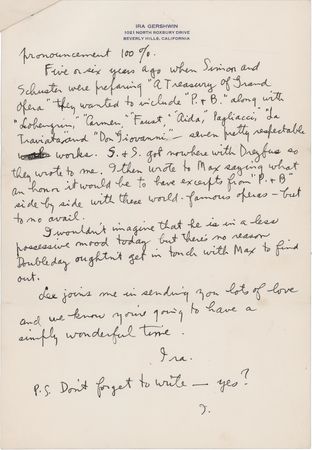 IRA GERSHWIN
1021 NORTH ROXBURY DRIVE
BEVERLY HILLS, CALIFORNIA
pronouncement 100%.
Five or six years ago when Simon and
Schuster were preparing "A Treasury of Grand
Opera" they wanted to include "P. & B." along with
"Lohengrin," "Carmen," "Faust," "Aida," Pagliacci, "La
Traviata," and "Don Giovanni" — seven pretty respectable
works. S. & S. got nowhere with Dreyfus so
they wrote to me. I then wrote to Max saying what
an honor it would be to have excerpts from "P. & B"
side by side with these world-famous operas — but
to no avail.
I wouldn't imagine that he is in a less
possessive mood today but there's no reason
Doubleday oughtn't get in touch with Max to find
out.
Lee joins me in sending you lots of love
and we know you're going to have a
simply wonderful time.
Ira.
P.S. Don't forget to write — yes?
I.